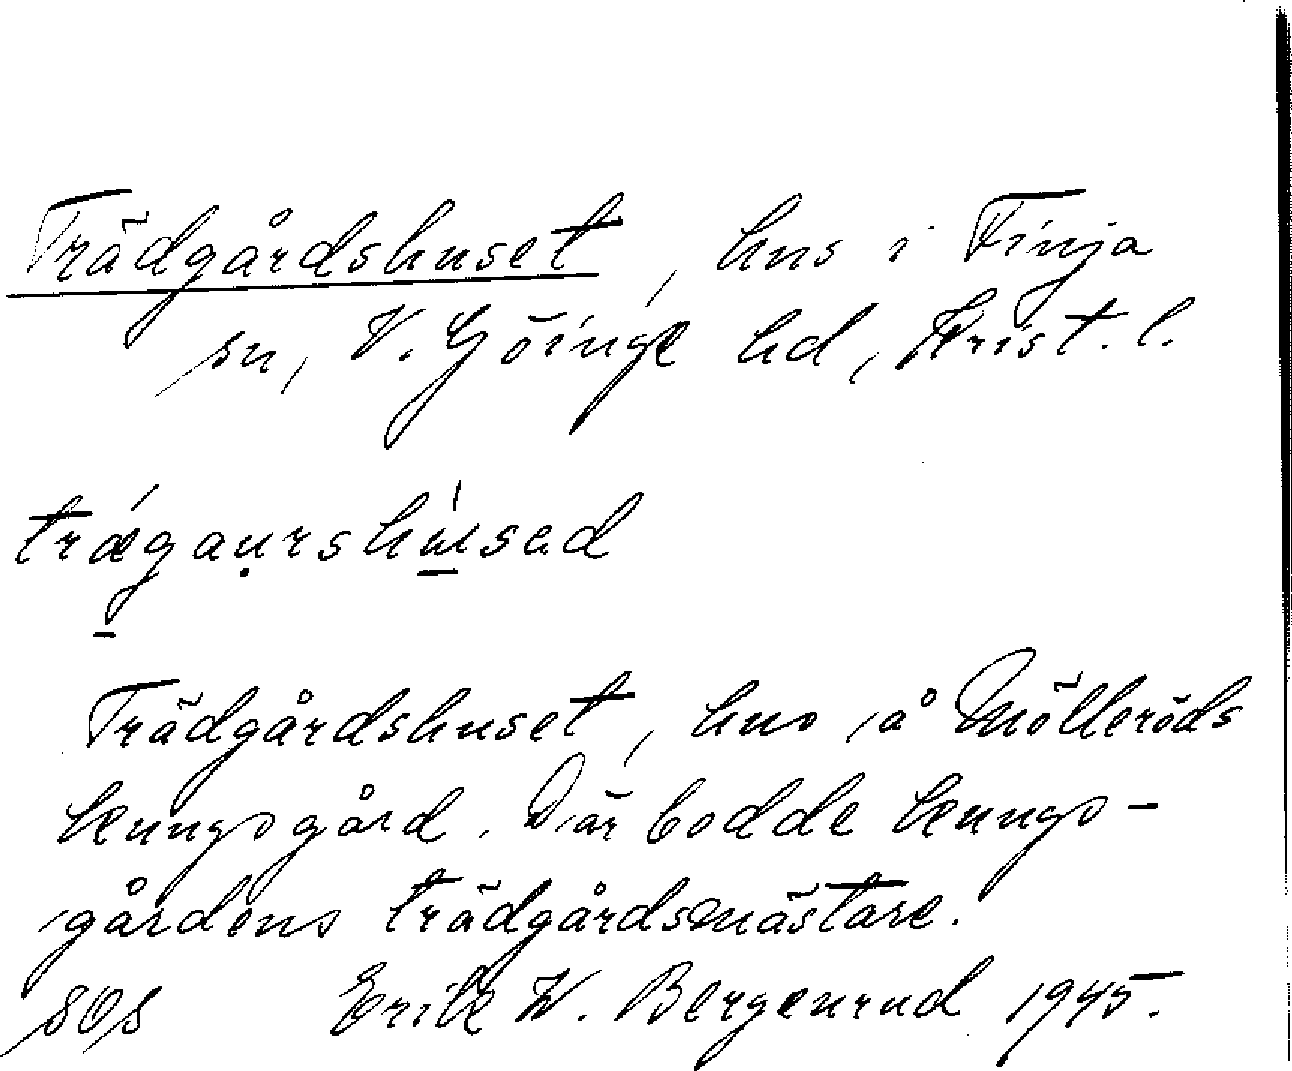 Trädgårdshuset, hus i Finja
sn, V. Göinge hd, Krist. l.
Trädgårdshuset, hus å Mölleröds
kungsgård. Där bodde kungs-
gårdens trädgårdsmästare.
Erik W. Bergenrud 1945.